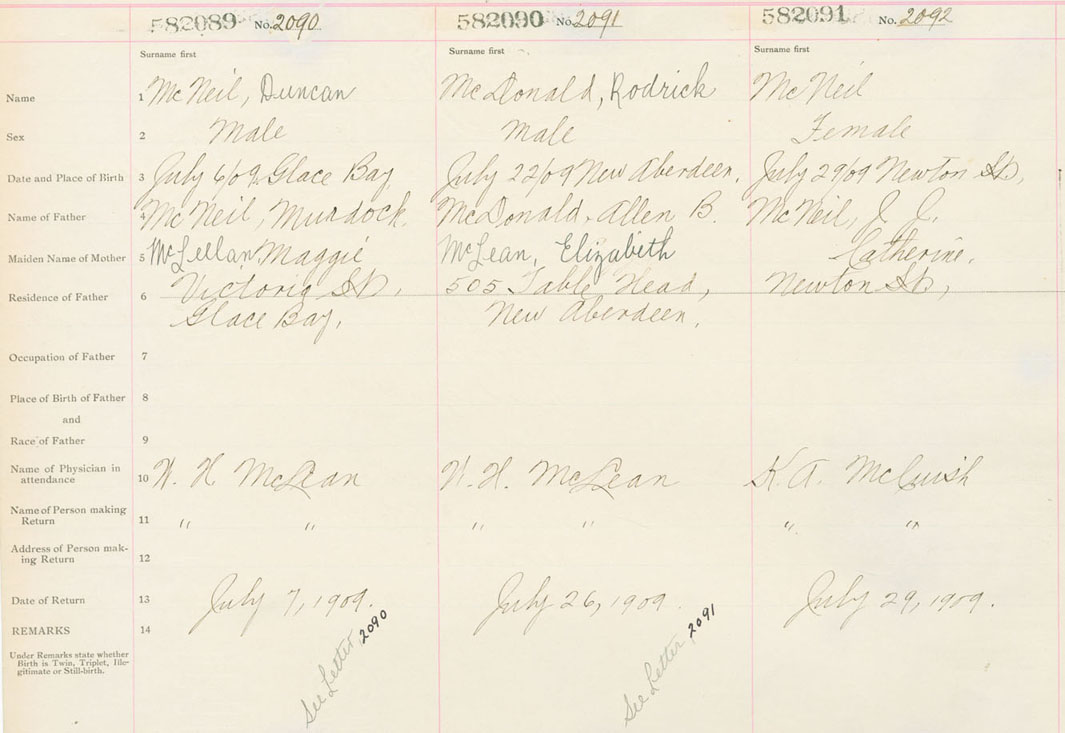 582089 No. 2090 582090 No. 2091 582091 No. 2092
Surname first Surname first Surname first
Name 1 McNeil, Duncan McDonald, Rodrick McNeil
Sex 2 Male Male Female
Date and Place of Birth 3 July 6/09 Glace Bay. July 22/09 New Aberdeen. July 29/09 Newton St.,
Name of Father 4 McNeil, Murdock. McDonald, Allen B. McNeil, J. J.
Maiden Name of Mother 5 McLellan Maggie McLean, Elizabeth Catherine.
Residence of Father 6 Victoria St., 505 Table Head, Newton St.,
Glace Bay. New Aberdeen.
Occupation of Father 7
Place of Birth of Father 8
and
Race of Father 9
Name of Physician in
attendance 10 W. H. McLean W. H. McLean K. A. McCuish
Name of Person making
Return 11 " " " " " "
Address of Person mak-
ing Return 12
Date of Return 13 July 7, 1909. July 26, 1909. July 29, 1909.
REMARKS 14
Under Remarks state whether
Birth is Twin, Triplet, Ille-
gitimate or Still-birth.
See Letter, 2090
See Letter, 2091